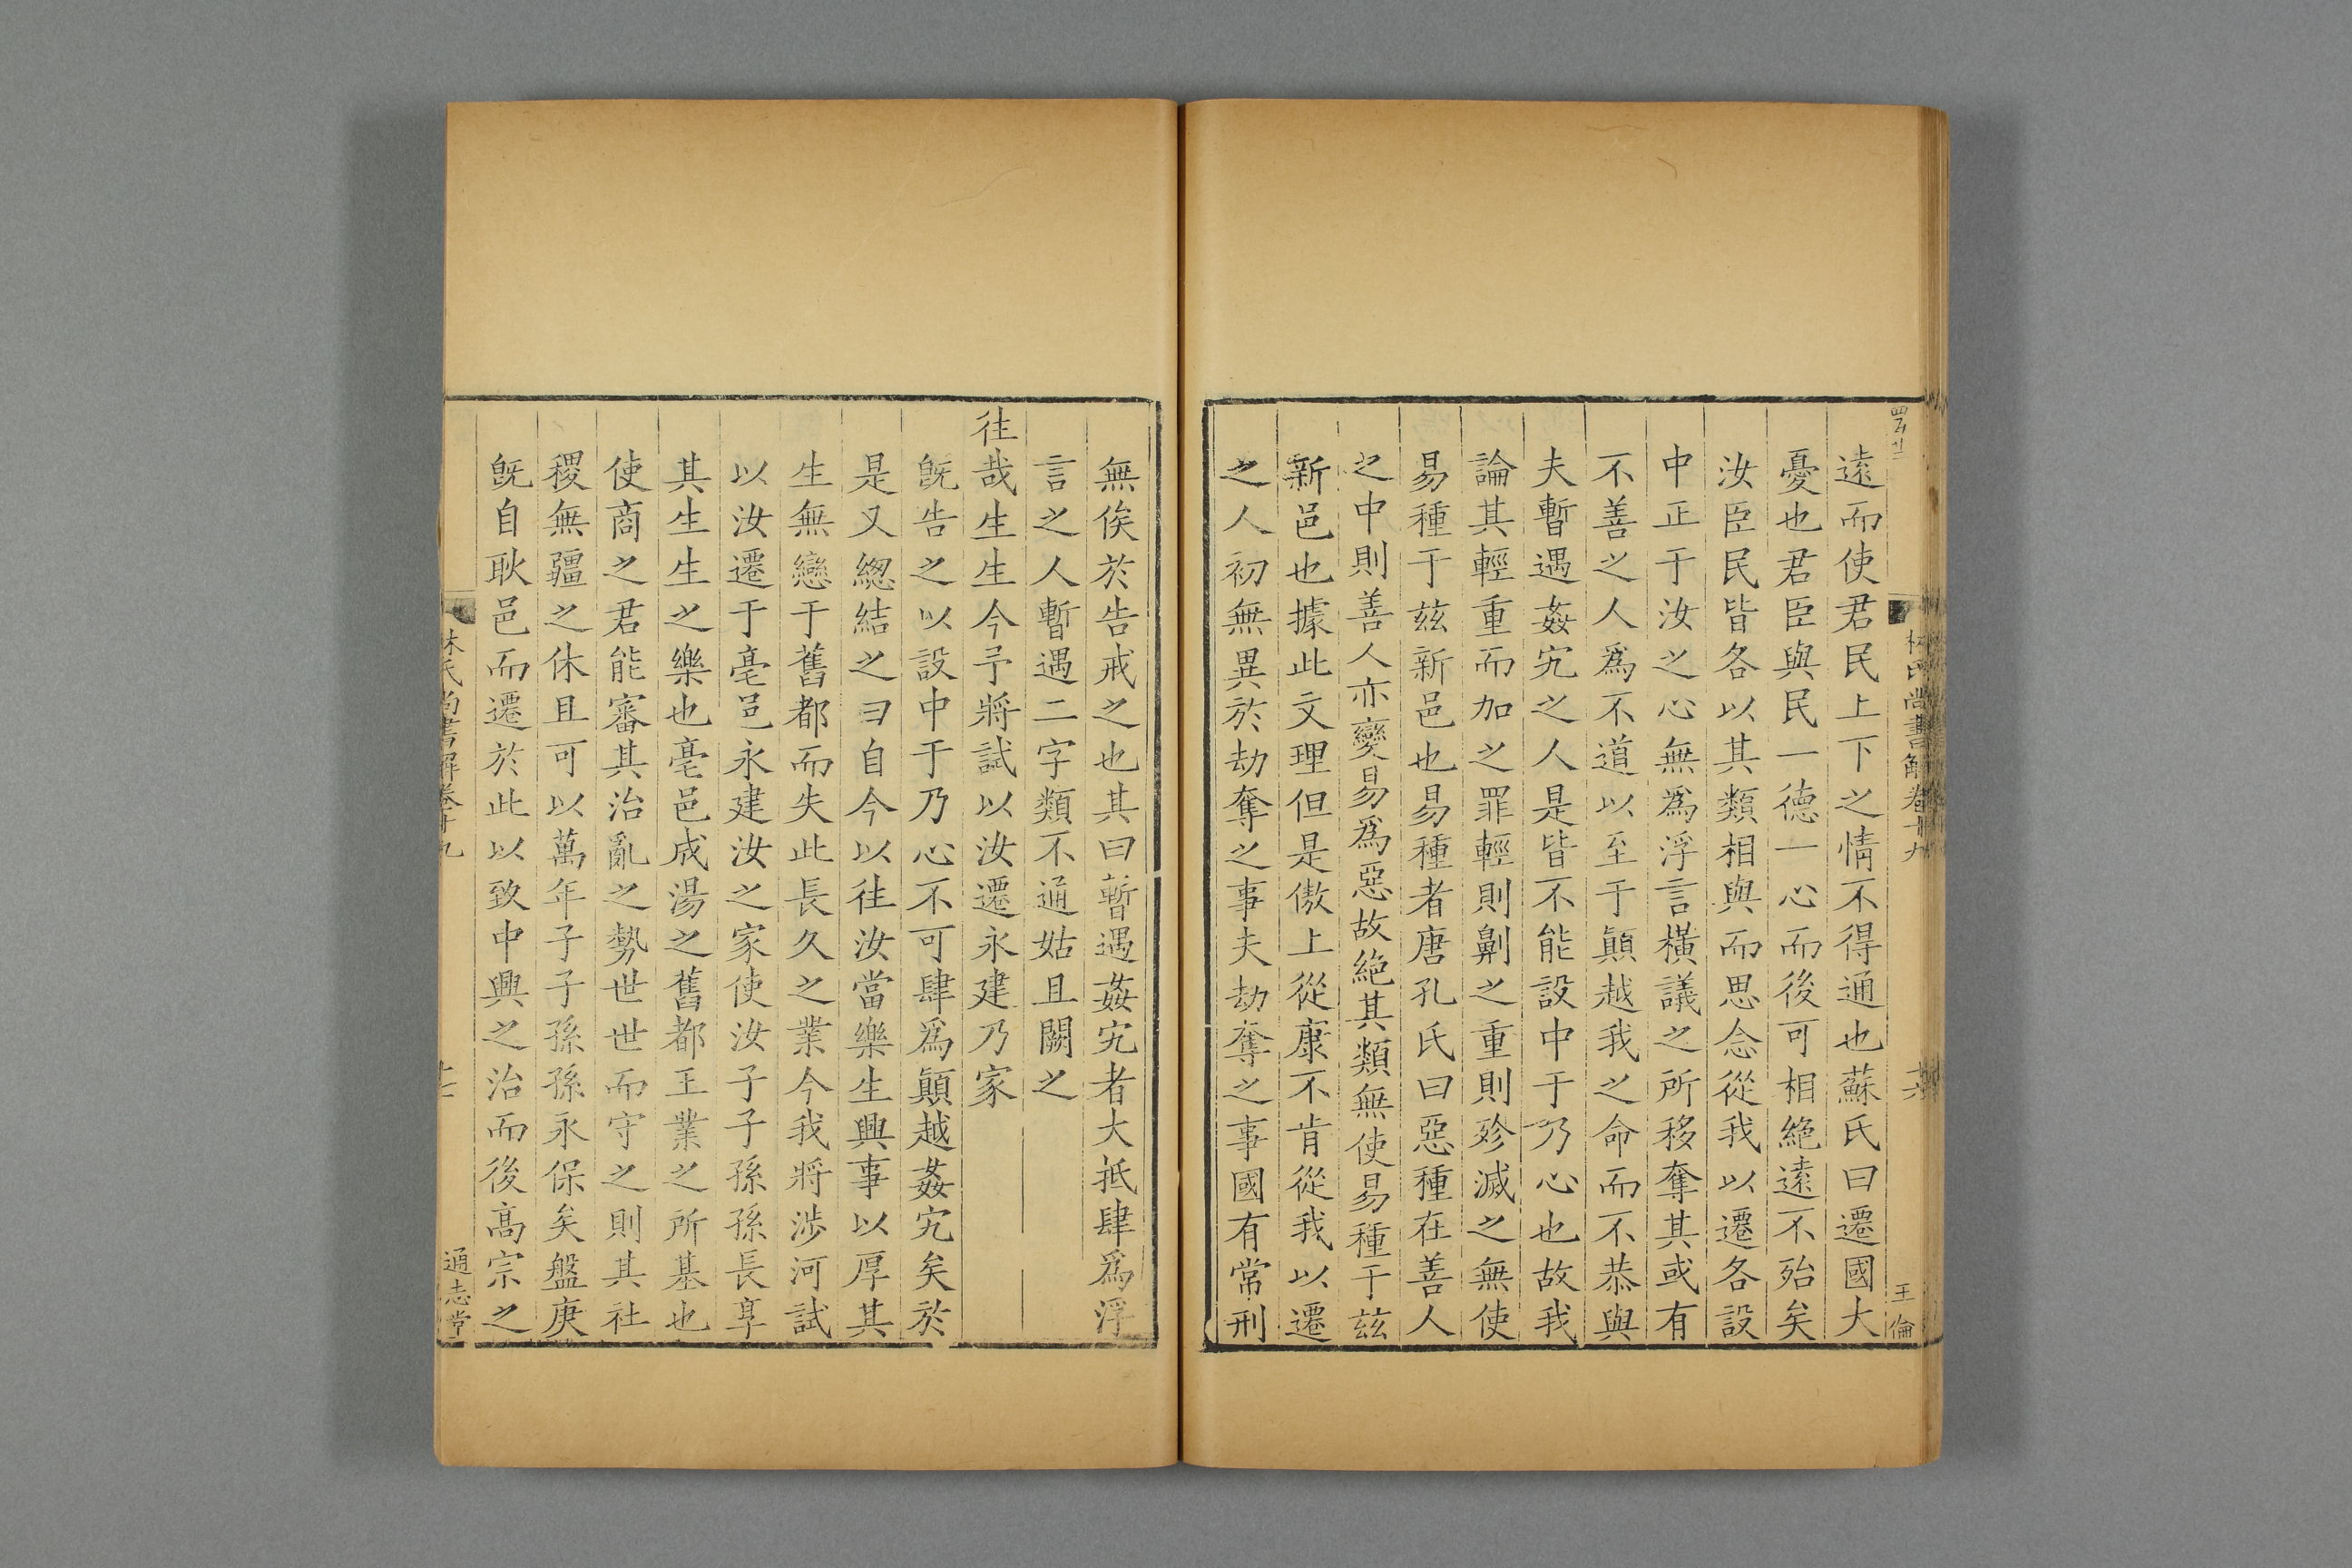 遠而使君民上下之情不得通也蘇氏曰遷國大
憂也君臣與民一德一心而後可相絕遠不殆矣
汝臣民皆各以其類相與而思念從我以遷各設
中正于汝之心無為浮言橫議之所移奪其或有
不善之人爲不道以至于顚越我之命而不恭與
夫暫遇姦宄之人是皆不能設中于乃心也故我
論其輕重而加之罪輕則劓之重則殄滅之無使
易種于兹新邑也易種者唐孔氏曰惡種在善人
之中則善人亦變易爲惡故絶其類無使易種于兹
新邑也據此文理但是傲上從康不肯從我以遷
之人初無異於劫奪之事夫劫奪之事國有常刑
林氏尚書解卷十九
王倫
無俟於告戒之也其曰暫遇姦宄者大抵肆爲浮
言之人暫遇二字類不通姑且闕之
往哉生生今予將試以汝遷永建乃家
旣告之以設中于乃心不可肆爲顚越姦宄矣於
是又緫結之曰自今以往汝當樂生興事以厚其
生無戀于舊都而失此長久之業今我將涉河試
以汝遷于亳邑永建汝之家使汝子子孫孫長享
其生生之樂也亳邑成湯之舊都王業之所基也
使商之君能審其治亂之勢世世而守之則其社
稷無疆之休且可以萬年子子孫孫永保矣盤庚
旣自耿邑而遷於此以致中興之治而後高宗之
林氏尚書解卷十九
通志堂